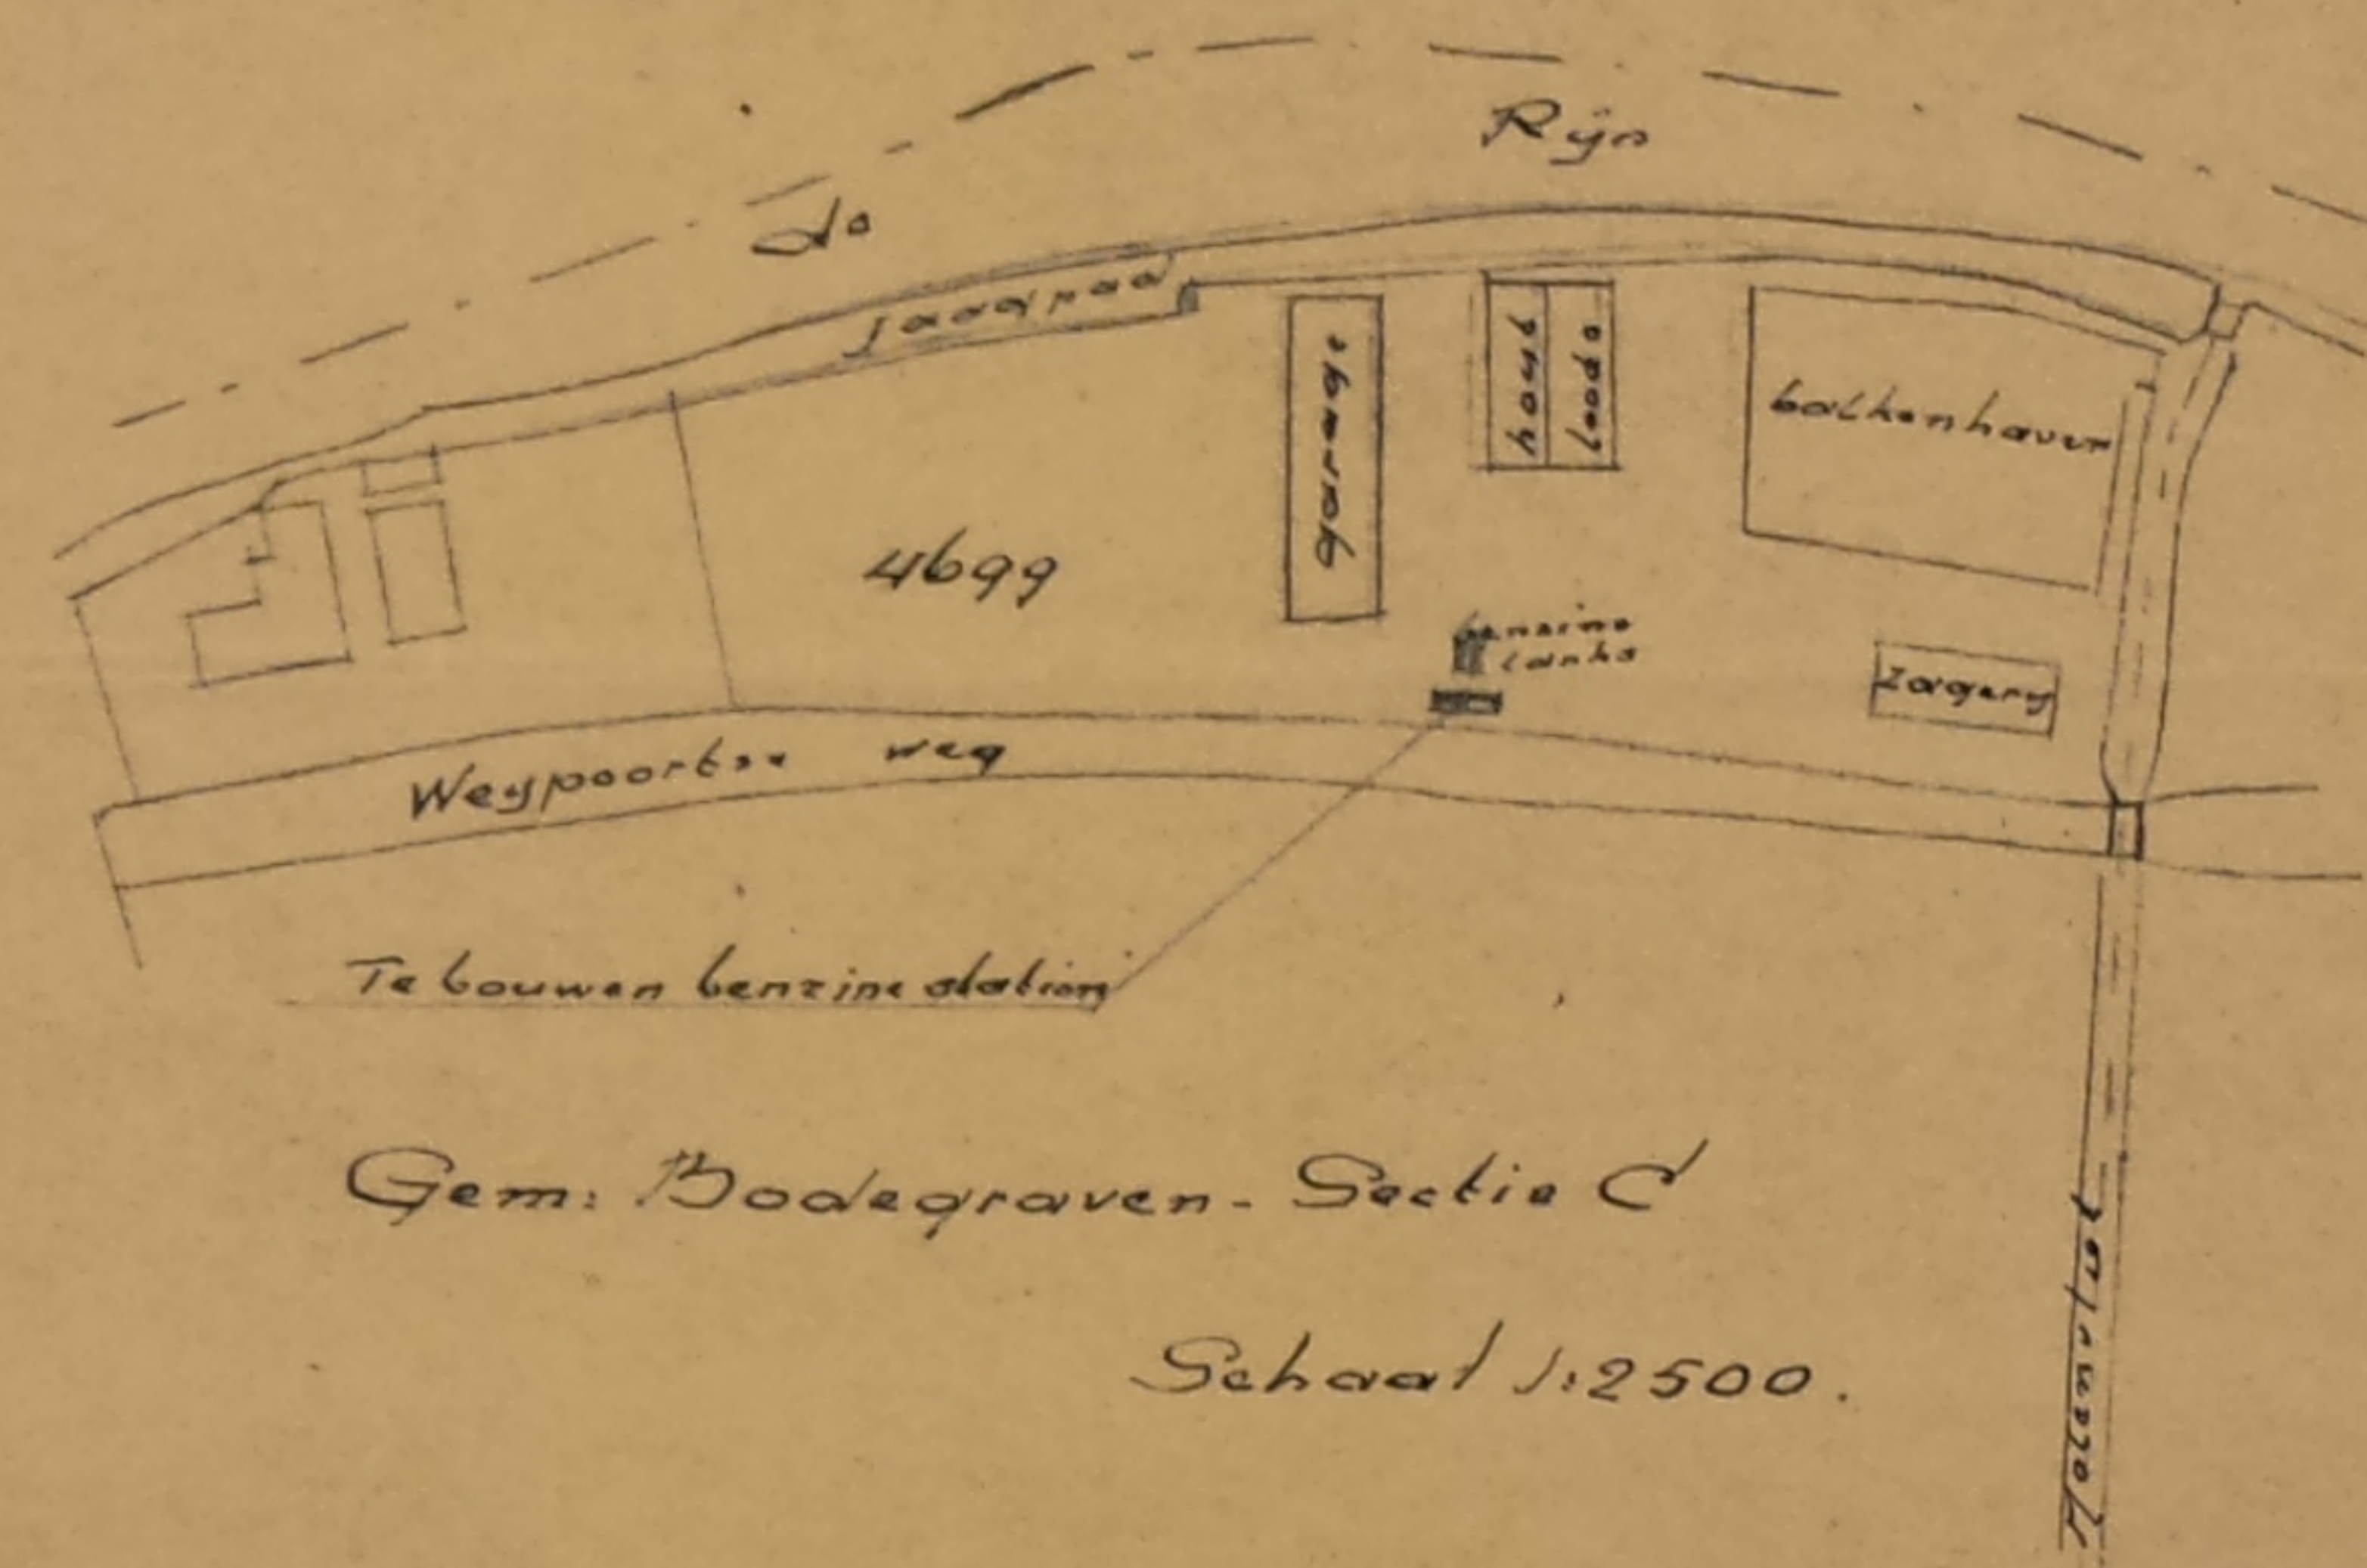 de Rijn
Jaagpad
garage
hout
loods
balkenhaven
4699
benzine
tanks
Zagerij
Weijpoortse weg
Te bouwen benzine station
Gem: Bodegraven - Sectie C
Schaal 1:2500.